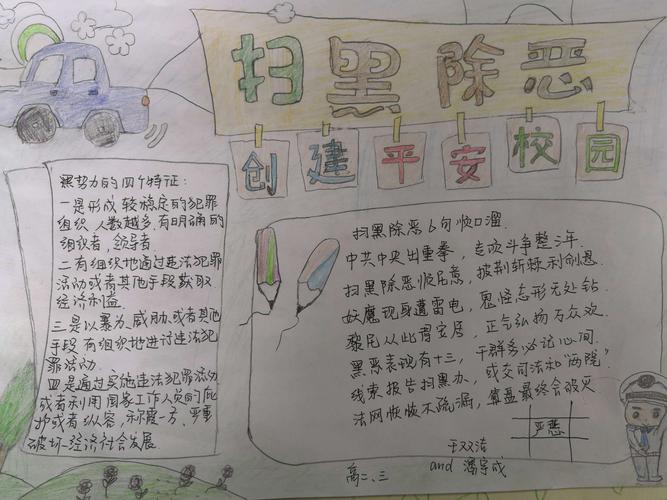 扫黑除恶
创建平安校园
黑势力的四个特征:
一是形成较稳定的犯罪
组织人数越多.有明确的
组织者,领导者.
二有组织地通过违法犯罪
活动或者其他手段获取
经济利益
三是以暴力、威胁、或者其他
手段有组织地进讨违法犯
罪活动.
四是通过实施违法犯罪活动.
或者利用国家工作人员的庇
护或者纵容,称霸一方,严重
破坏经济社会发展.
扫黑除恶6句顺口溜.
中共中央出重拳,走吹斗争整三年.
扫黑除恶顺民意,披荆斩棘利剑悬.
妖魔现身遭雷电,鬼怪态形无处钻.
黎民从此得安居,正气弘扬万众欢.
黑恶表现有十三,干群务必记心间.
线索报告扫黑办,或交司法和“两院”
法网恢恢不疏漏,最终会破灭
严惩
王双洁
and 潘宇成
高二、三